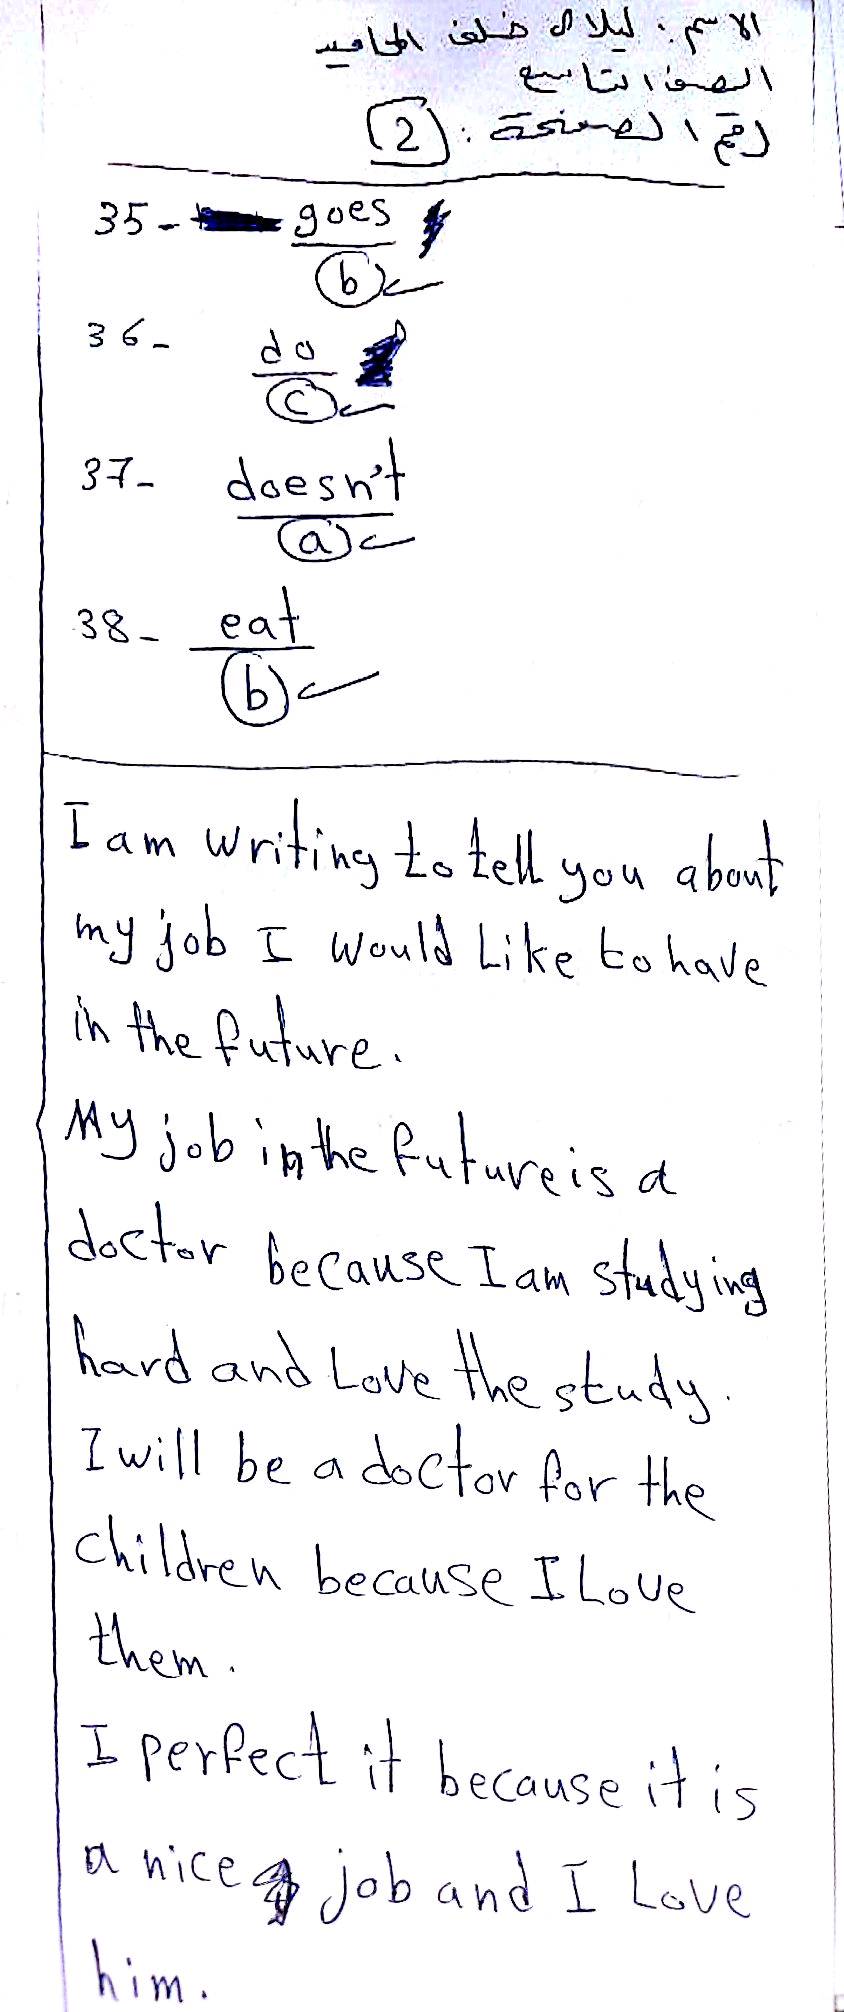 الاسم: ليلاف خلف الحاميد
الصف التاسع
رقم الصفحة: 2
35- goes
b
36- do
c
37- doesn't
a
38- eat
b
I am writing to tell you about
my job I would Like to have
in the future.
My job in the future is a
doctor because I am studying
hard and Love the study.
I will be a doctor for the
children because I Love
them.
I perfect it because it is
a nice job and I Love
him.